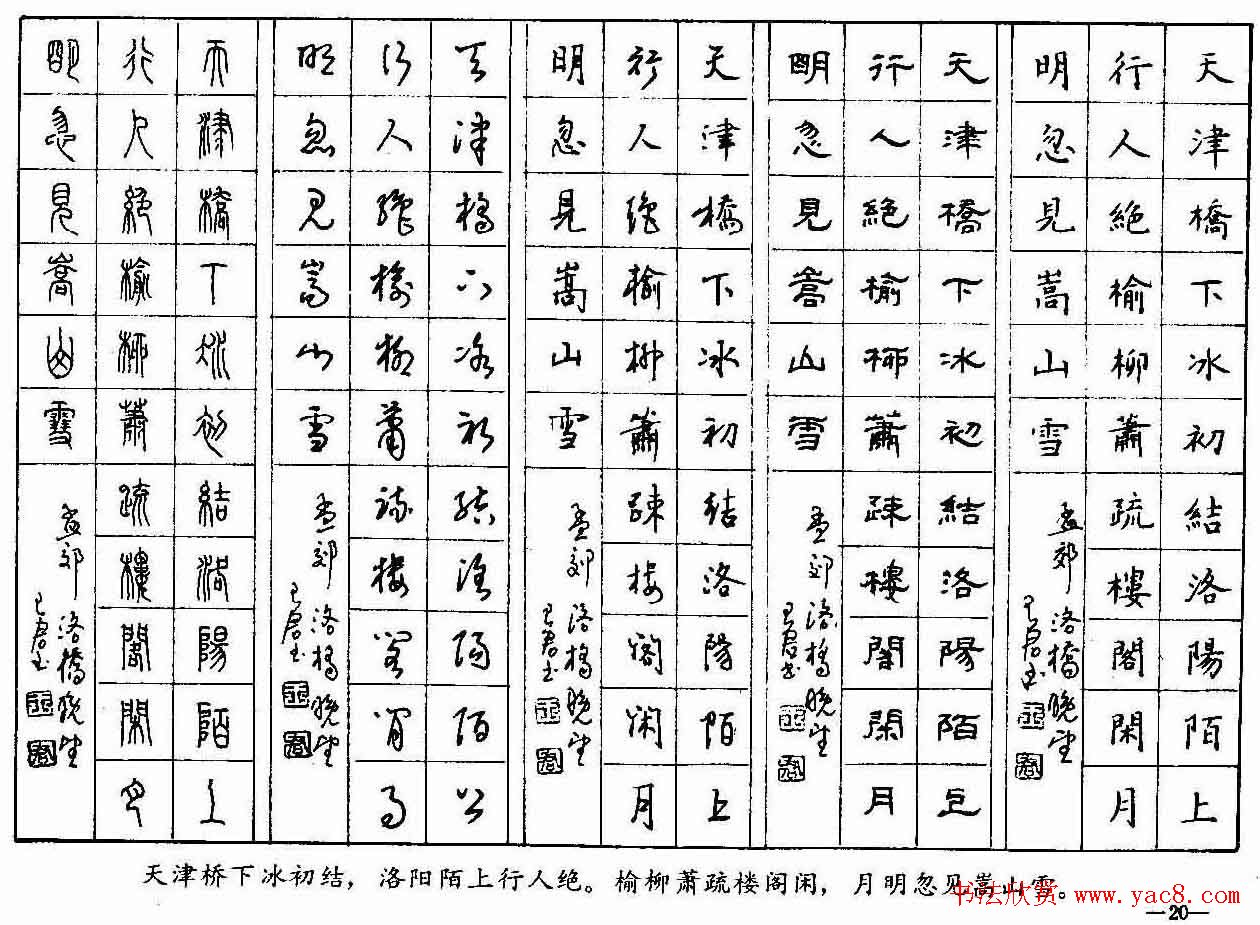 天津橋下冰初結洛陽陌上
行人絕榆柳蕭疏樓閣閑月
明忽見嵩山雪
孟郊 洛橋晚望
天津橋下冰初結洛陽陌上
行人絕榆柳蕭踈樓閣閑月
明忽見嵩山雪
孟郊 洛橋晚望
天津橋下冰初結洛陽陌上
行人絕榆柳蕭踈樓閣閑月
明忽見嵩山雪
孟郊 洛橋晚望
天津橋下冰初結洛陽陌上
行人絕榆柳蕭疏樓閣閑月
明忽見嵩山雪
孟郊 洛橋晚望
天津橋下冰初結洛陽陌上
行人絕榆柳蕭疏樓閣閑月
明忽見嵩山雪
孟郊 洛橋晚望
天津桥下冰初结，洛阳陌上行人绝。榆柳萧疏楼阁闲，月明忽见嵩山雪。
书法欣赏 www.yac8.com
—20—